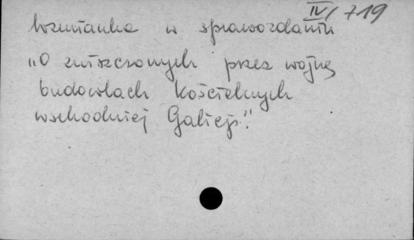 IV/719
wzmianka w sprawozdaniu
„O zniszczonych przez wojnę
budowlach kościelnych
wschodniej Galicji."